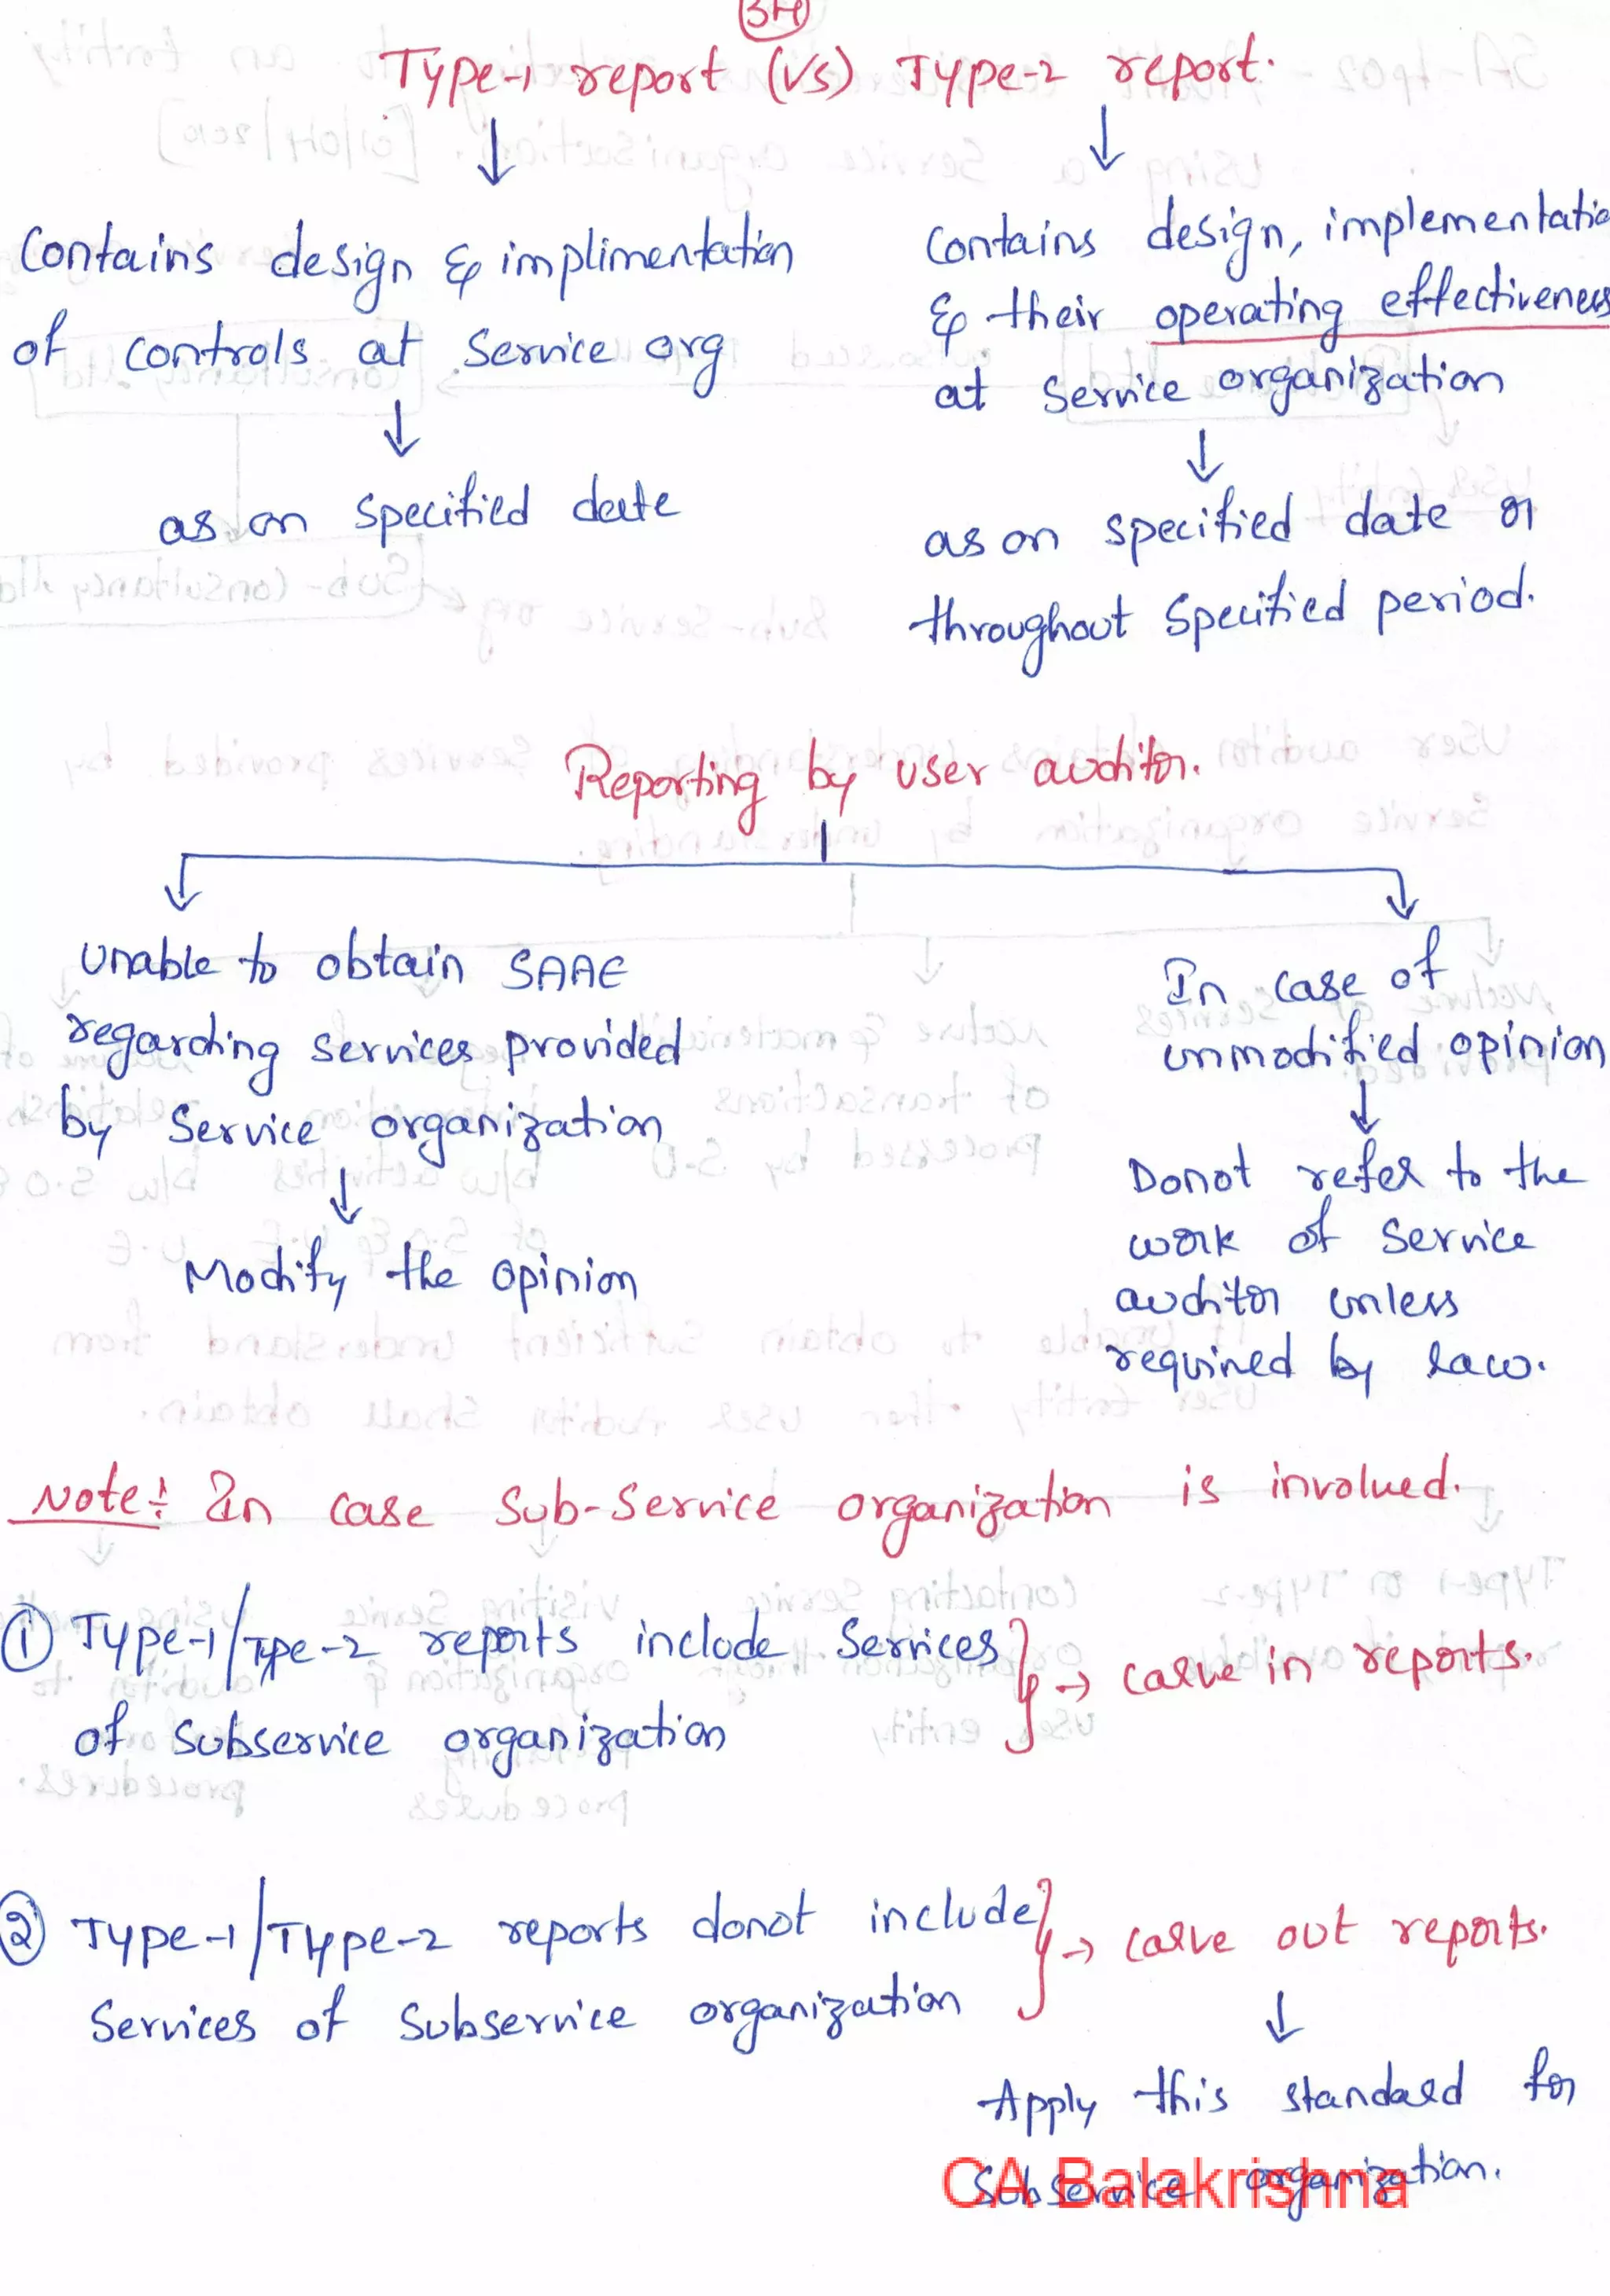 34
Type-1 report (vs) Type-2 report.
Contains design & implimentation
of controls at Service org
as on specified date
Contains design, implementatio
& their operating effectiveness
at Service organization
as on specified date or
throughout specified period.
Reporting by user auditor.
Unable to obtain SAAE
regarding services provided
by Service organization
Modify the opinion
In case of
unmodified opinion
Donot refer to the
work of Service
auditor unless
required by law.
Note: In case Sub-Service organization is involved.
① Type-1/Tpe-2 reports include Services
of Subservice organization
→ carve in reports.
② Type-1/Type-2 reports donot include
Services of Subservice organization
→ carve out reports.
Apply this standard for
Subservice organization.
CA Balakrishna